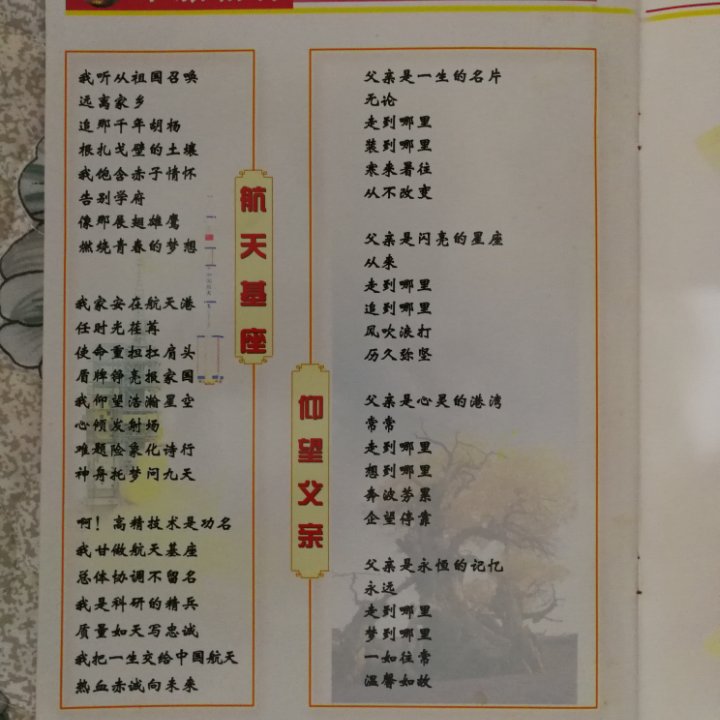 航天基座
我听从祖国召唤
远离家乡
追那千年胡杨
根扎戈壁的土壤
我饱含赤子情怀
告别学府
像那展翅雄鹰
燃烧青春的梦想
我家安在航天港
任时光荏苒
使命重担扛肩头
盾牌铮亮报家国
我仰望浩瀚星空
心倾发射场
难题险象化诗行
神舟托梦问九天
啊！高精技术是功名
我甘做航天基座
总体协调不留名
我是科研的精兵
质量如天写忠诚
我把一生交给中国航天
热血赤诚向未来
仰望父亲
父亲是一生的名片
无论
走到哪里
装到哪里
寒来暑往
从不改变
父亲是闪亮的星座
从来
走到哪里
追到哪里
风吹浪打
历久弥坚
父亲是心灵的港湾
常常
走到哪里
想到哪里
奔波劳累
企望停靠
父亲是永恒的记忆
永远
走到哪里
梦到哪里
一如往常
温馨如故